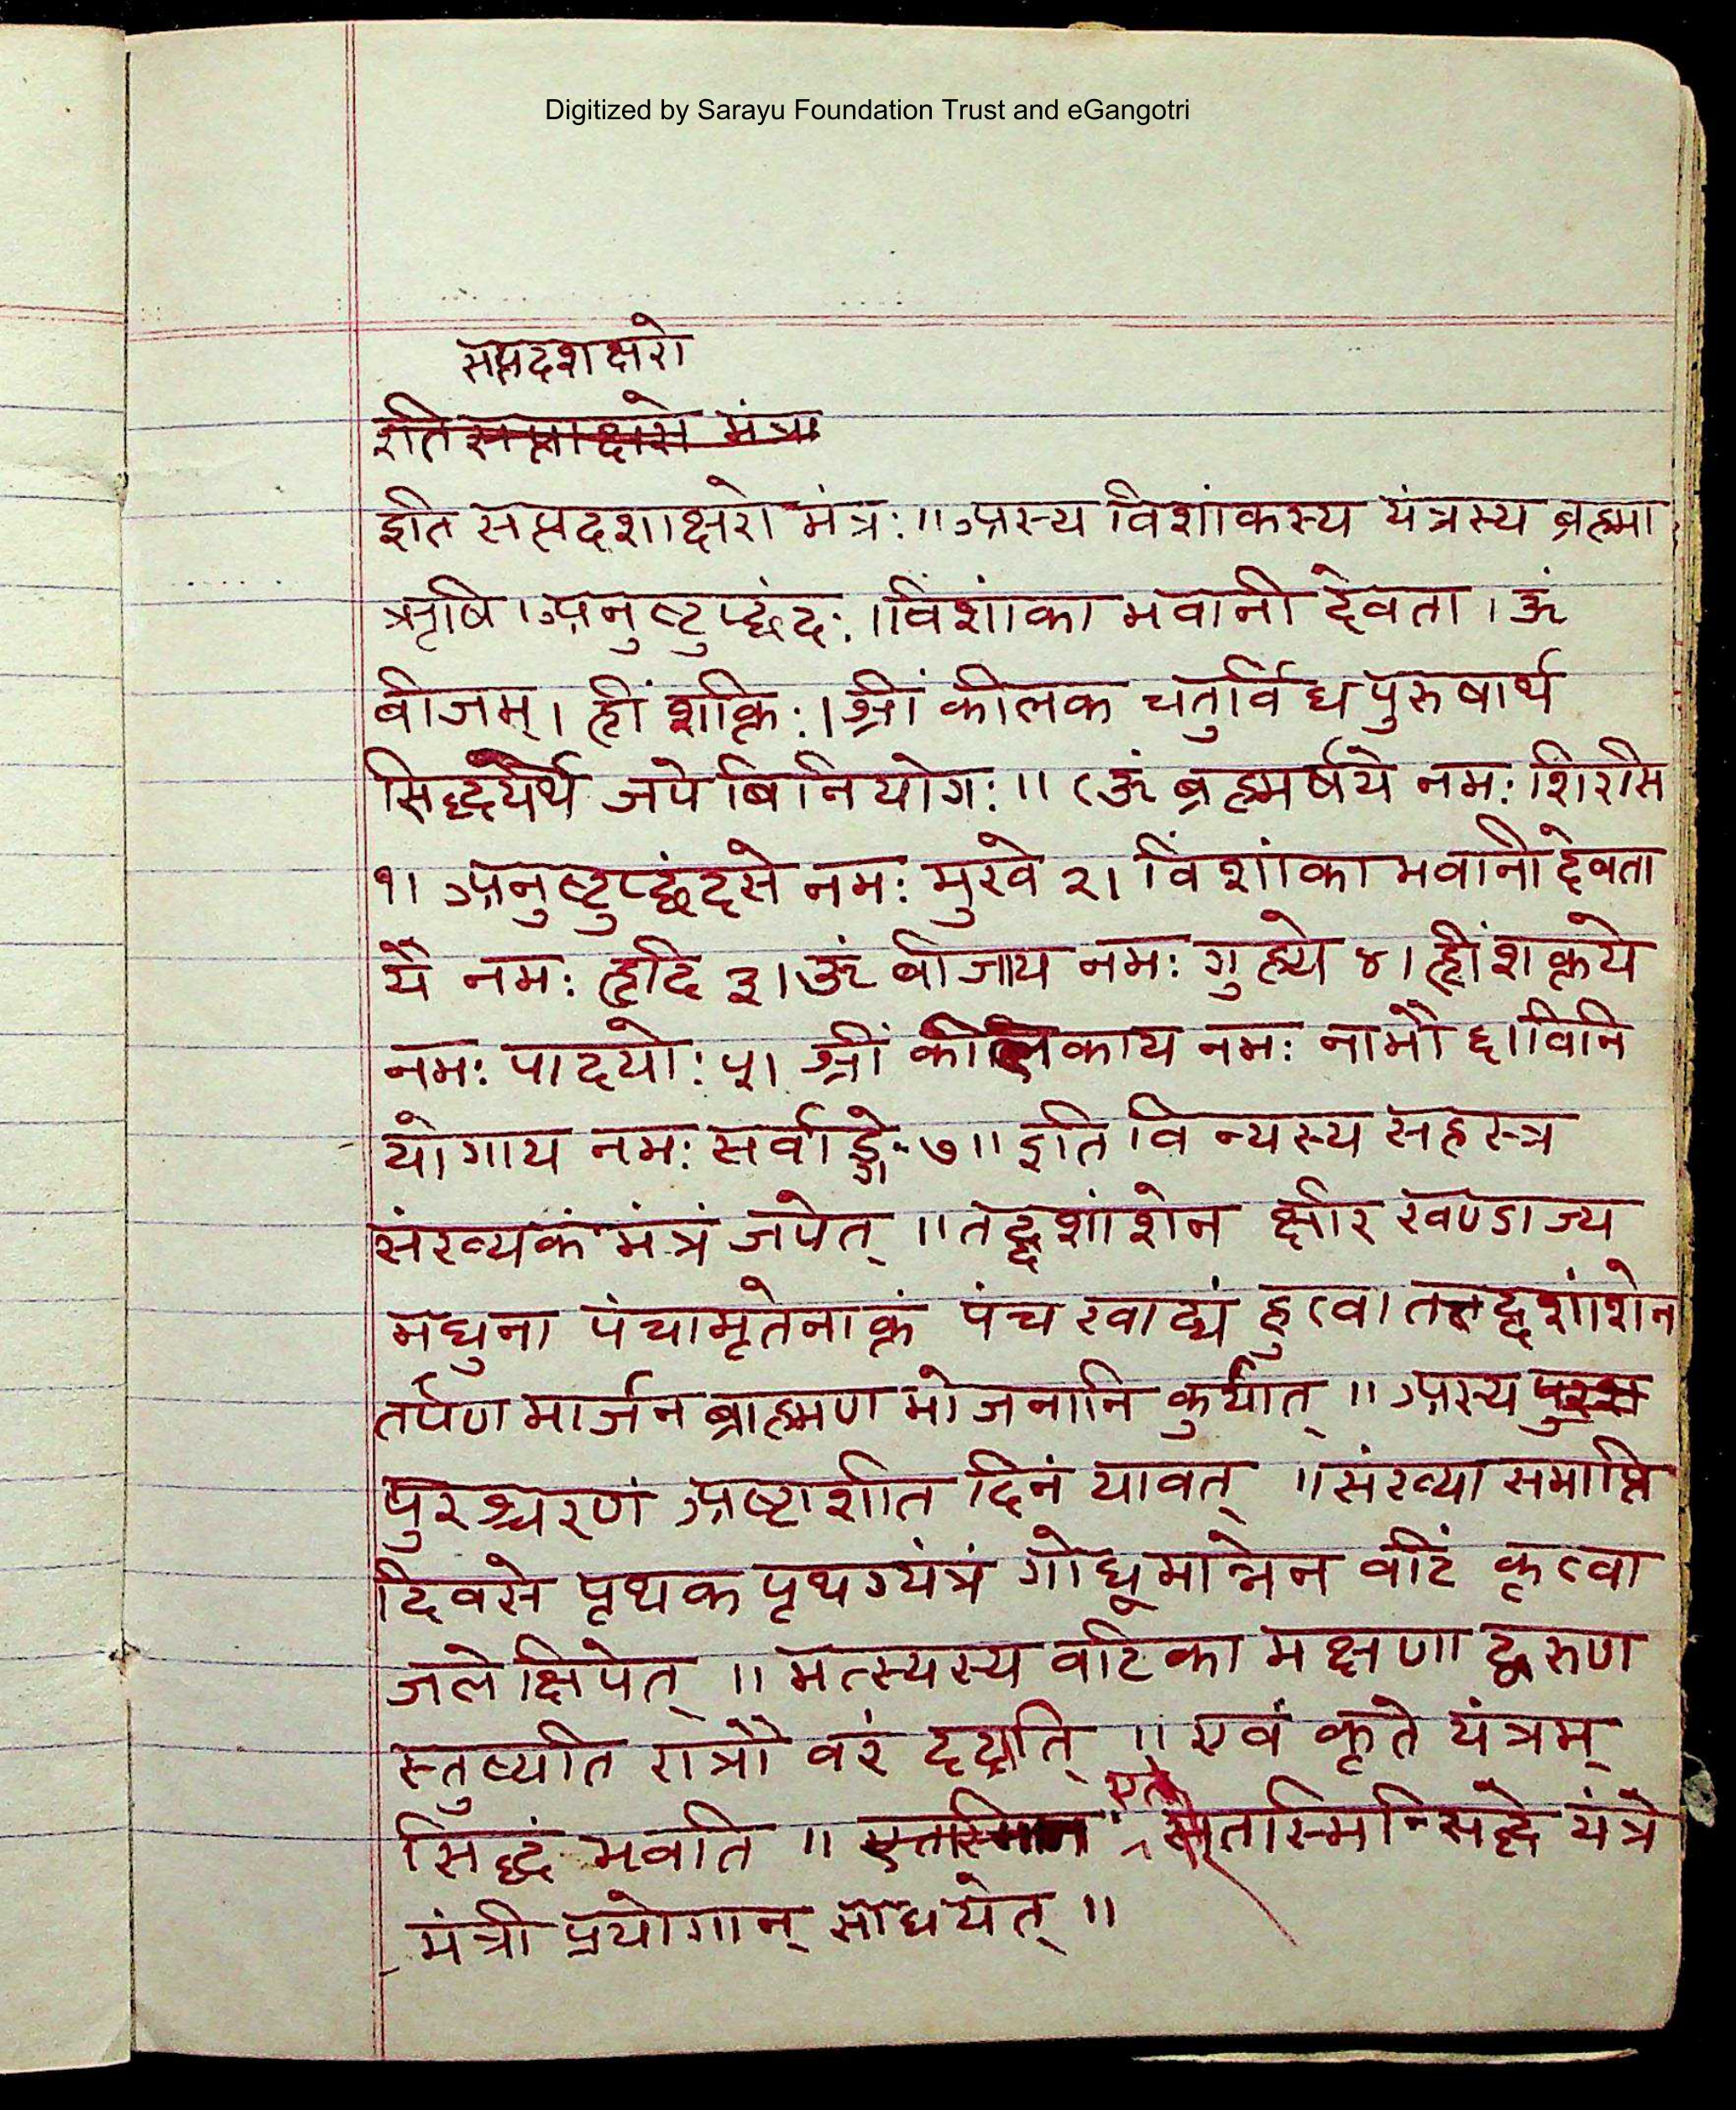 Digitized by Sarayu Foundation Trust and eGangotri
सप्तदशक्षरो
इति सप्ताक्षरो मंत्र
इति सप्तदशाक्षरो मंत्रः॥ अस्य विंशांकस्य यंत्रस्य ब्रह्मा
ऋषि। अनुष्टुप्छंदः। विंशांका भवानी देवता। ॐ
बीजम्। ह्रीं शक्तिः। श्रीं कीलक चतुर्विध पुरुषार्थ
सिद्ध्यर्थे जपे बिनियोगः॥ (ॐ ब्रह्मर्षये नमः शिरसि
१। अनुष्टुप्छंदसे नमः मुखे २। विंशांका भवानी देवता
यै नमः हृदि ३। ॐ बीजाय नमः गुह्ये ४। ह्रीं शक्तये
नमः पादयोः ५। श्रीं कीलकाय नमः नाभौ ६। विनि
योगाय नमः सर्वाङ्गे ७॥ इति विन्यस्य सहस्त्र
संख्यकं मंत्रं जपेत्॥ तद्दशांशेन क्षीर खण्डाज्य
मधुना पंचामृतेनाक्तं पंच खाद्यं हुत्वा तत्तद्दशांशेन
तर्पण मार्जन ब्राह्मण भोजनानि कुर्यात्॥ अस्य
पुरश्चरणं अष्टाशीति दिनं यावत्॥ संख्या समाप्ति
दिवसे पृथक पृथग्यंत्रं गोधूमान्नेन वटिं कृत्वा
जले क्षिपेत्॥ मत्स्यस्य वटिका भक्षणा द्वरुण
स्तुष्यति रात्रौ वरं ददाति॥ एवं कृते यंत्रम्
सिद्धं भवति॥ एतस्मिन्सिद्धे यंत्रे
मंत्री प्रयोगान् साधयेत्॥